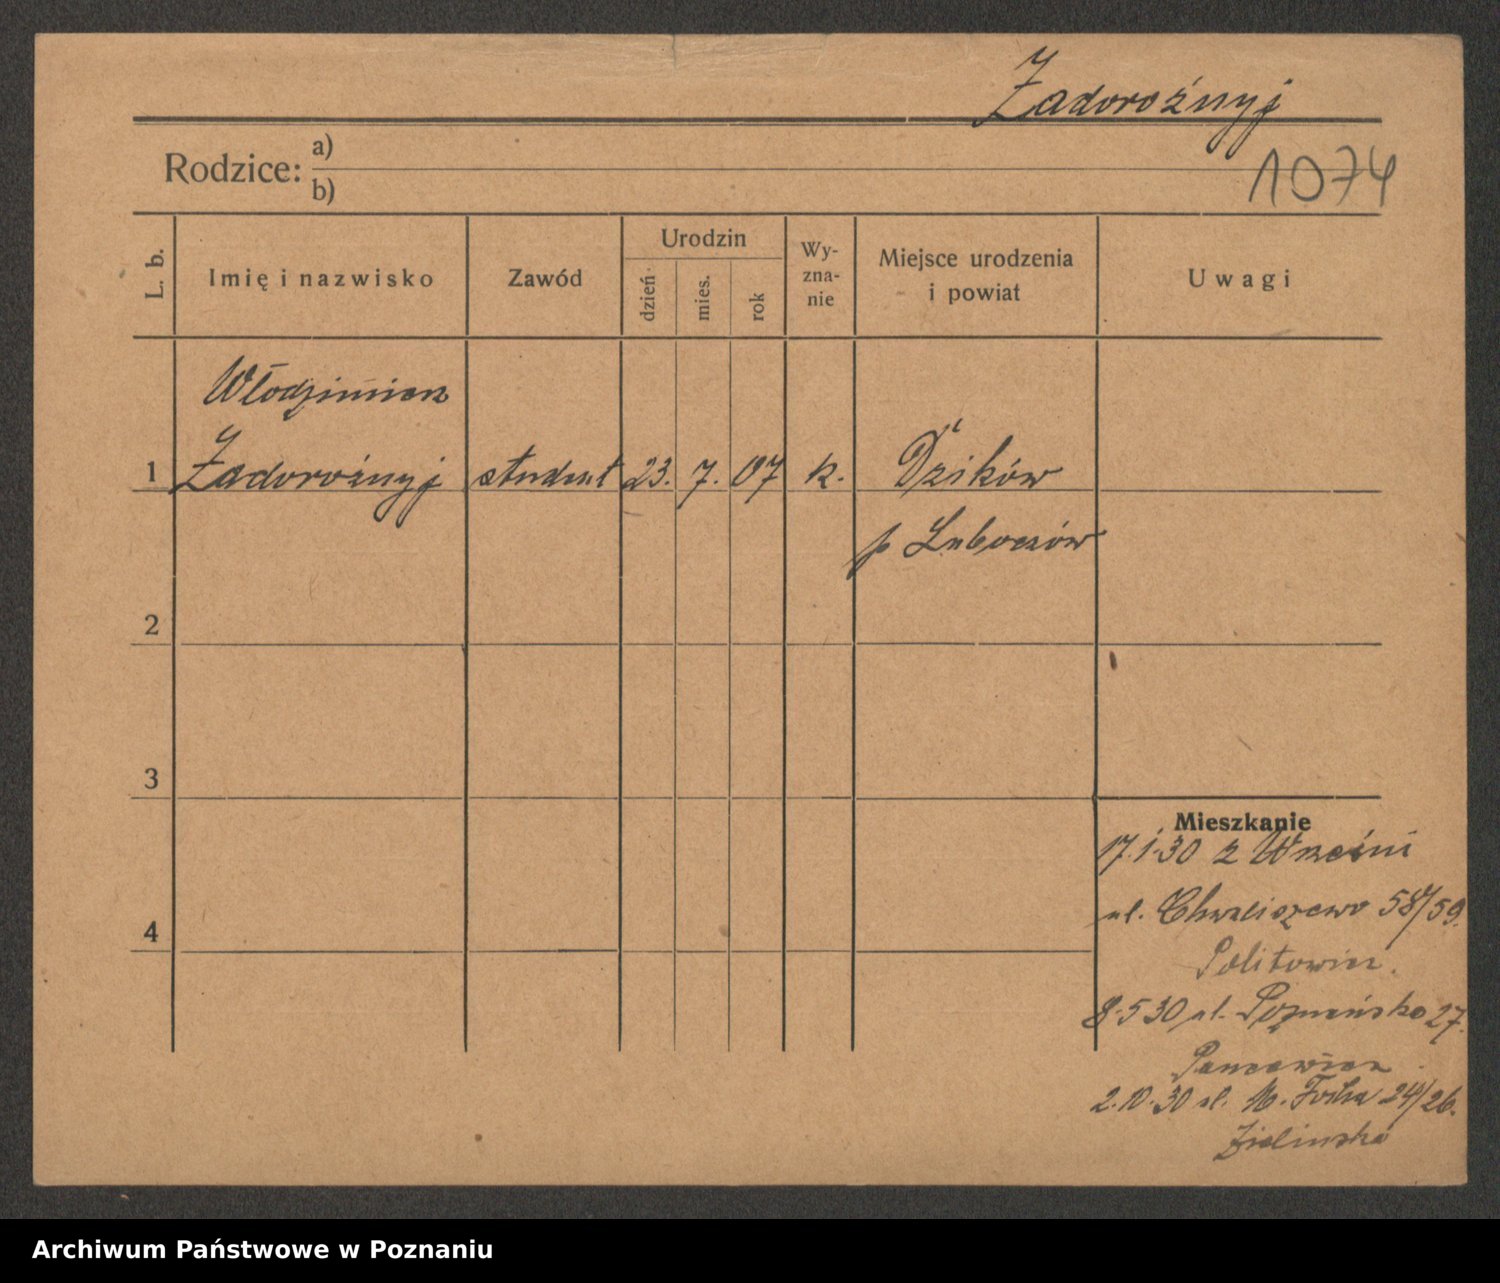 Zadorożnyj
Rodzice: a)
b)
1074
L. b.
Imię i nazwisko
Zawód
Urodzin
dzień
mies.
rok
Wy-
zna-
nie
Miejsce urodzenia
i powiat
Uwagi
Włodzimierz
1 Zadorożnyj student 23. 7. 07 k. Dzików
p Lubaczów
2
3
4
Mieszkanie
17.1.30 z Wrześni
ul. Chwaliszewo 58/59.
Politowicz.
8.5 30 ul. Poznańska 27.
2.10.30 ul. M. Focha 24/26.
Zielińska
Archiwum Państwowe w Poznaniu